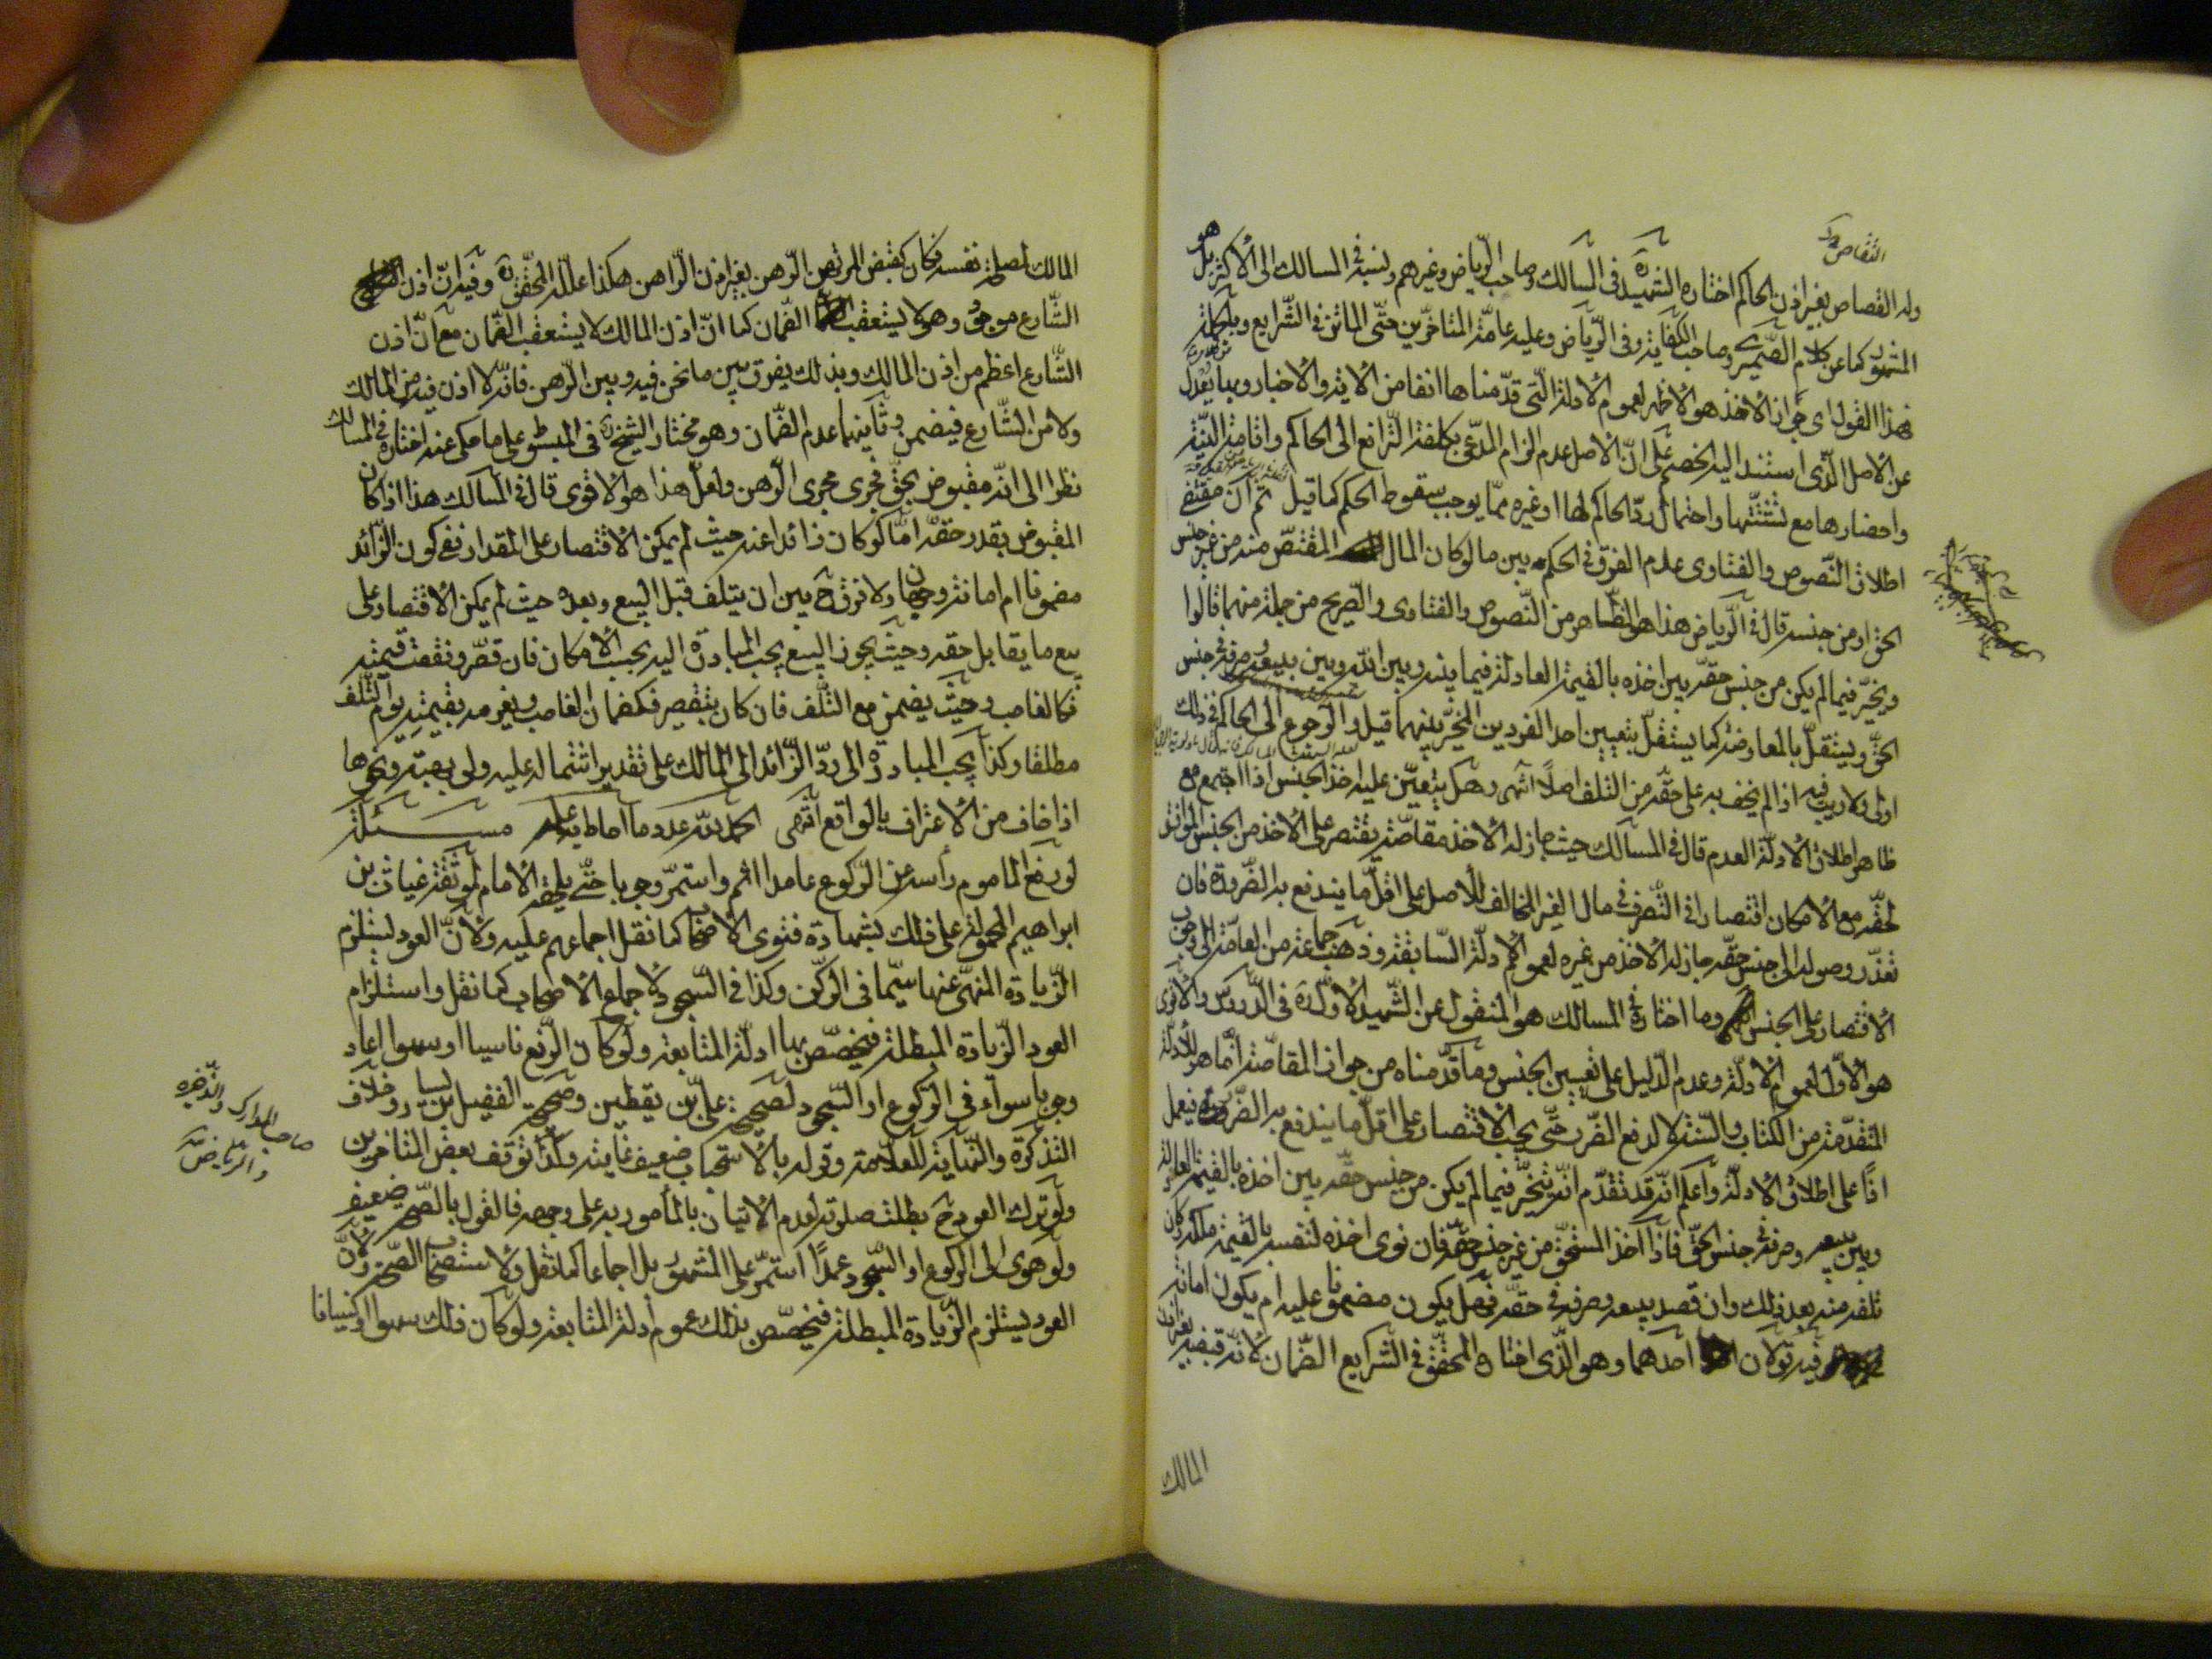 وله القصاص بغير اذن الحاكم اختاره الشهيد ره فى المسالك وصاحب الرياض وغيرهم ونسبه فى المسالك الى الاكثر بل هو
المشهور كما عن وصاحب الكفاية وفى الرياض وعليه عامة المتاخرين حتى الماتن فى الشرايع وبالجملة
فهذا القول اى جواز الاخذ هو الاظهر لعموم الادلة التى قدمناها انفا من الاية والاخبار وبها يعدل
عن الاصل الذى استند اليه الخصم على ان الاصل عدم الزام المدعى بكلفة الترافع الى الحاكم واقامة البينة
واحضارها مع واحتمال رد الحاكم لها او غيره مما يوجب سقوط الحكم كما قيل ثم ان مقتضى
اطلاق النصوص والفتاوى عدم الفرق فى الحكم بين ما لو كان المال المقتص منه من غير جنس
الحق او من جنسه قال فى الرياض هذا هو الظاهر من النصوص والفتاوى والصريح من جملة منهما قالوا
ويخير فيما لم يكن من جنس حقه بين اخذه بالقيمة العادلة فيما بينه وبين الله وبين بيعه وصرفه فى جنس
الحق ويستقل بالمعاوضة كما يستقل بتعيين احد الفردين المخير بينهما قيل والرجوع الى الحاكم فى ذلك
اولى ولا ريب فيه اذا لم يخف به على حقه من التلف اصلا انتهى وهل يتعين عليه اخذ الجنس اذا اجتمع مع
ظاهر اطلاق الادلة العدم قال فى المسالك حيث جاز له الاخذ مقاصة يقتصر على الاخذ من الجنس الموافق
لحقه مع الامكان اقتصارا فى التصرف فى مال الغير المخالف للاصل على اقل ما يندفع به الضرورة فان
تعذر وصوله الى جنس حقه جاز له الاخذ من غيره لعموم الادلة السابقة وذهب جماعة من العامة الى
الاقتصار على الجنس وما اختاره فى المسالك هو المنقول عن الشهيد الاول ره فى الدروس والاقوى
هو الاول لعموم الادلة وعدم الدليل على تعيين الجنس وما قدمناه من جواز المقاصة انما هو للادلة
المتقدمة من الكتاب والسنة لا لدفع الضرر حتى يجب الاقتصار على اقل ما يندفع به الضرر فيعمل
اذا على اطلاق الادلة واعلم انه قد تقدم انه يتخير فيما لم يكن من جنس حقه بين اخذه بالقيمة العادلة
وبين بيعه وصرفه فى جنس الحق فاذا اخذ المستحق من غير جنس حقه فان نوى اخذه لنفسه بالقيمة ملكه وكان
تلفه منه بعد ذلك وان قصد بيعه وصرفه فى حقه فهل يكون مضمونا عليه ام يكون امانة
فيه قولان احدهما وهو الذى اختاره المحقق فى الشرايع الضمان لانه قبضه بغير اذن
المالك
المالك لمصلحة نفسه فكان كقبض المرتهن الرهن بغير اذن الراهن هكذا علله المحقق ره وفيه ان اذن
الشارع موجود وهو لا يستعقب الضمان كما ان اذن المالك لا يستعقب الضمان مع ان اذن
الشارع اعظم من اذن المالك وبذلك يفرق بين ما نحن فيه وبين الرهن فانه لا اذن فيه من المالك
ولا من الشارع فيضمن وثانيهما عدم الضمان وهو مختار الشيخ ره فى المبسوط على ما حكى عنه اختاره فى المسالك
نظرا الى انه مقبوض بحق فجرى مجرى الرهن ولعل هذا هو الاقوى قال فى المسالك هذا اذا كان
المقبوض بقدر حقه اما لو كان زائدا عنه حيث لم يمكن الاقتصار على المقدار ففى كون الزائد
مضمونا ام امانة وجهان ولا فرق ح بين ان يتلف قبل البيع وبعده حيث لم يمكن الاقتصار على
بيع ما يقابل حقه وحيث يجوز البيع يجب المبادرة اليه بحسب الامكان فان قصر ونقصت قيمته
فكالغاصب وحيث يضمن مع التلف فان كان بتقصير فكضمان الغاصب ويغرمه بقيمته يوم التلف
مطلقا وكذا يجب المبادرة الى رد الزائد الى المالك على تقدير اشتماله عليه ولو بهبته ونحوها
اذا خاف من الاعتراف بالواقع انتهى الحمد لله عدد ما احاط به علمه مسئلة
لو رفع الماموم رأسه عن الركوع عامدا اثم واستمر وجوبا حتى يلحقه الامام لموثقة غياث بن
ابراهيم المحمولة على ذلك بشهادة فتوى الاصحاب كما نقل اجماعهم عليه ولان العود يستلزم
الزيادة المنهى عنها سيما فى الركن وكذا فى السجود لاجماع الاصحاب كما نقل واستلزام
العود الزيادة المبطلة فيخصص بها ادلة المتابعة ولو كان الرفع ناسيا او سهوا اعاد
وجوبا سواء فى الركوع او السجود لصحيح على بن يقطين وصحيح الفضيل بن يسار وخلاف
التذكرة والنهاية للعلامة وقوله بالاستحباب ضعيف غايته وكذا توقف بعض المتاخرين
ولو ترك العود ح بطلت صلوته لعدم الاتيان بالمأمور به على وجهه فالقول بالصحة ضعيف
ولو هوى الى الركوع او السجود عمدا استمر على المشهور بل اجماعا كما نقل ولاستصحاب الصحة ولان
العود يستلزم الزيادة المبطلة فيخصص بذلك عموم أدلة المتابعة ولو كان ذلك سهوا او نسيانا
صاحب المدارك والذخيره
والرياض